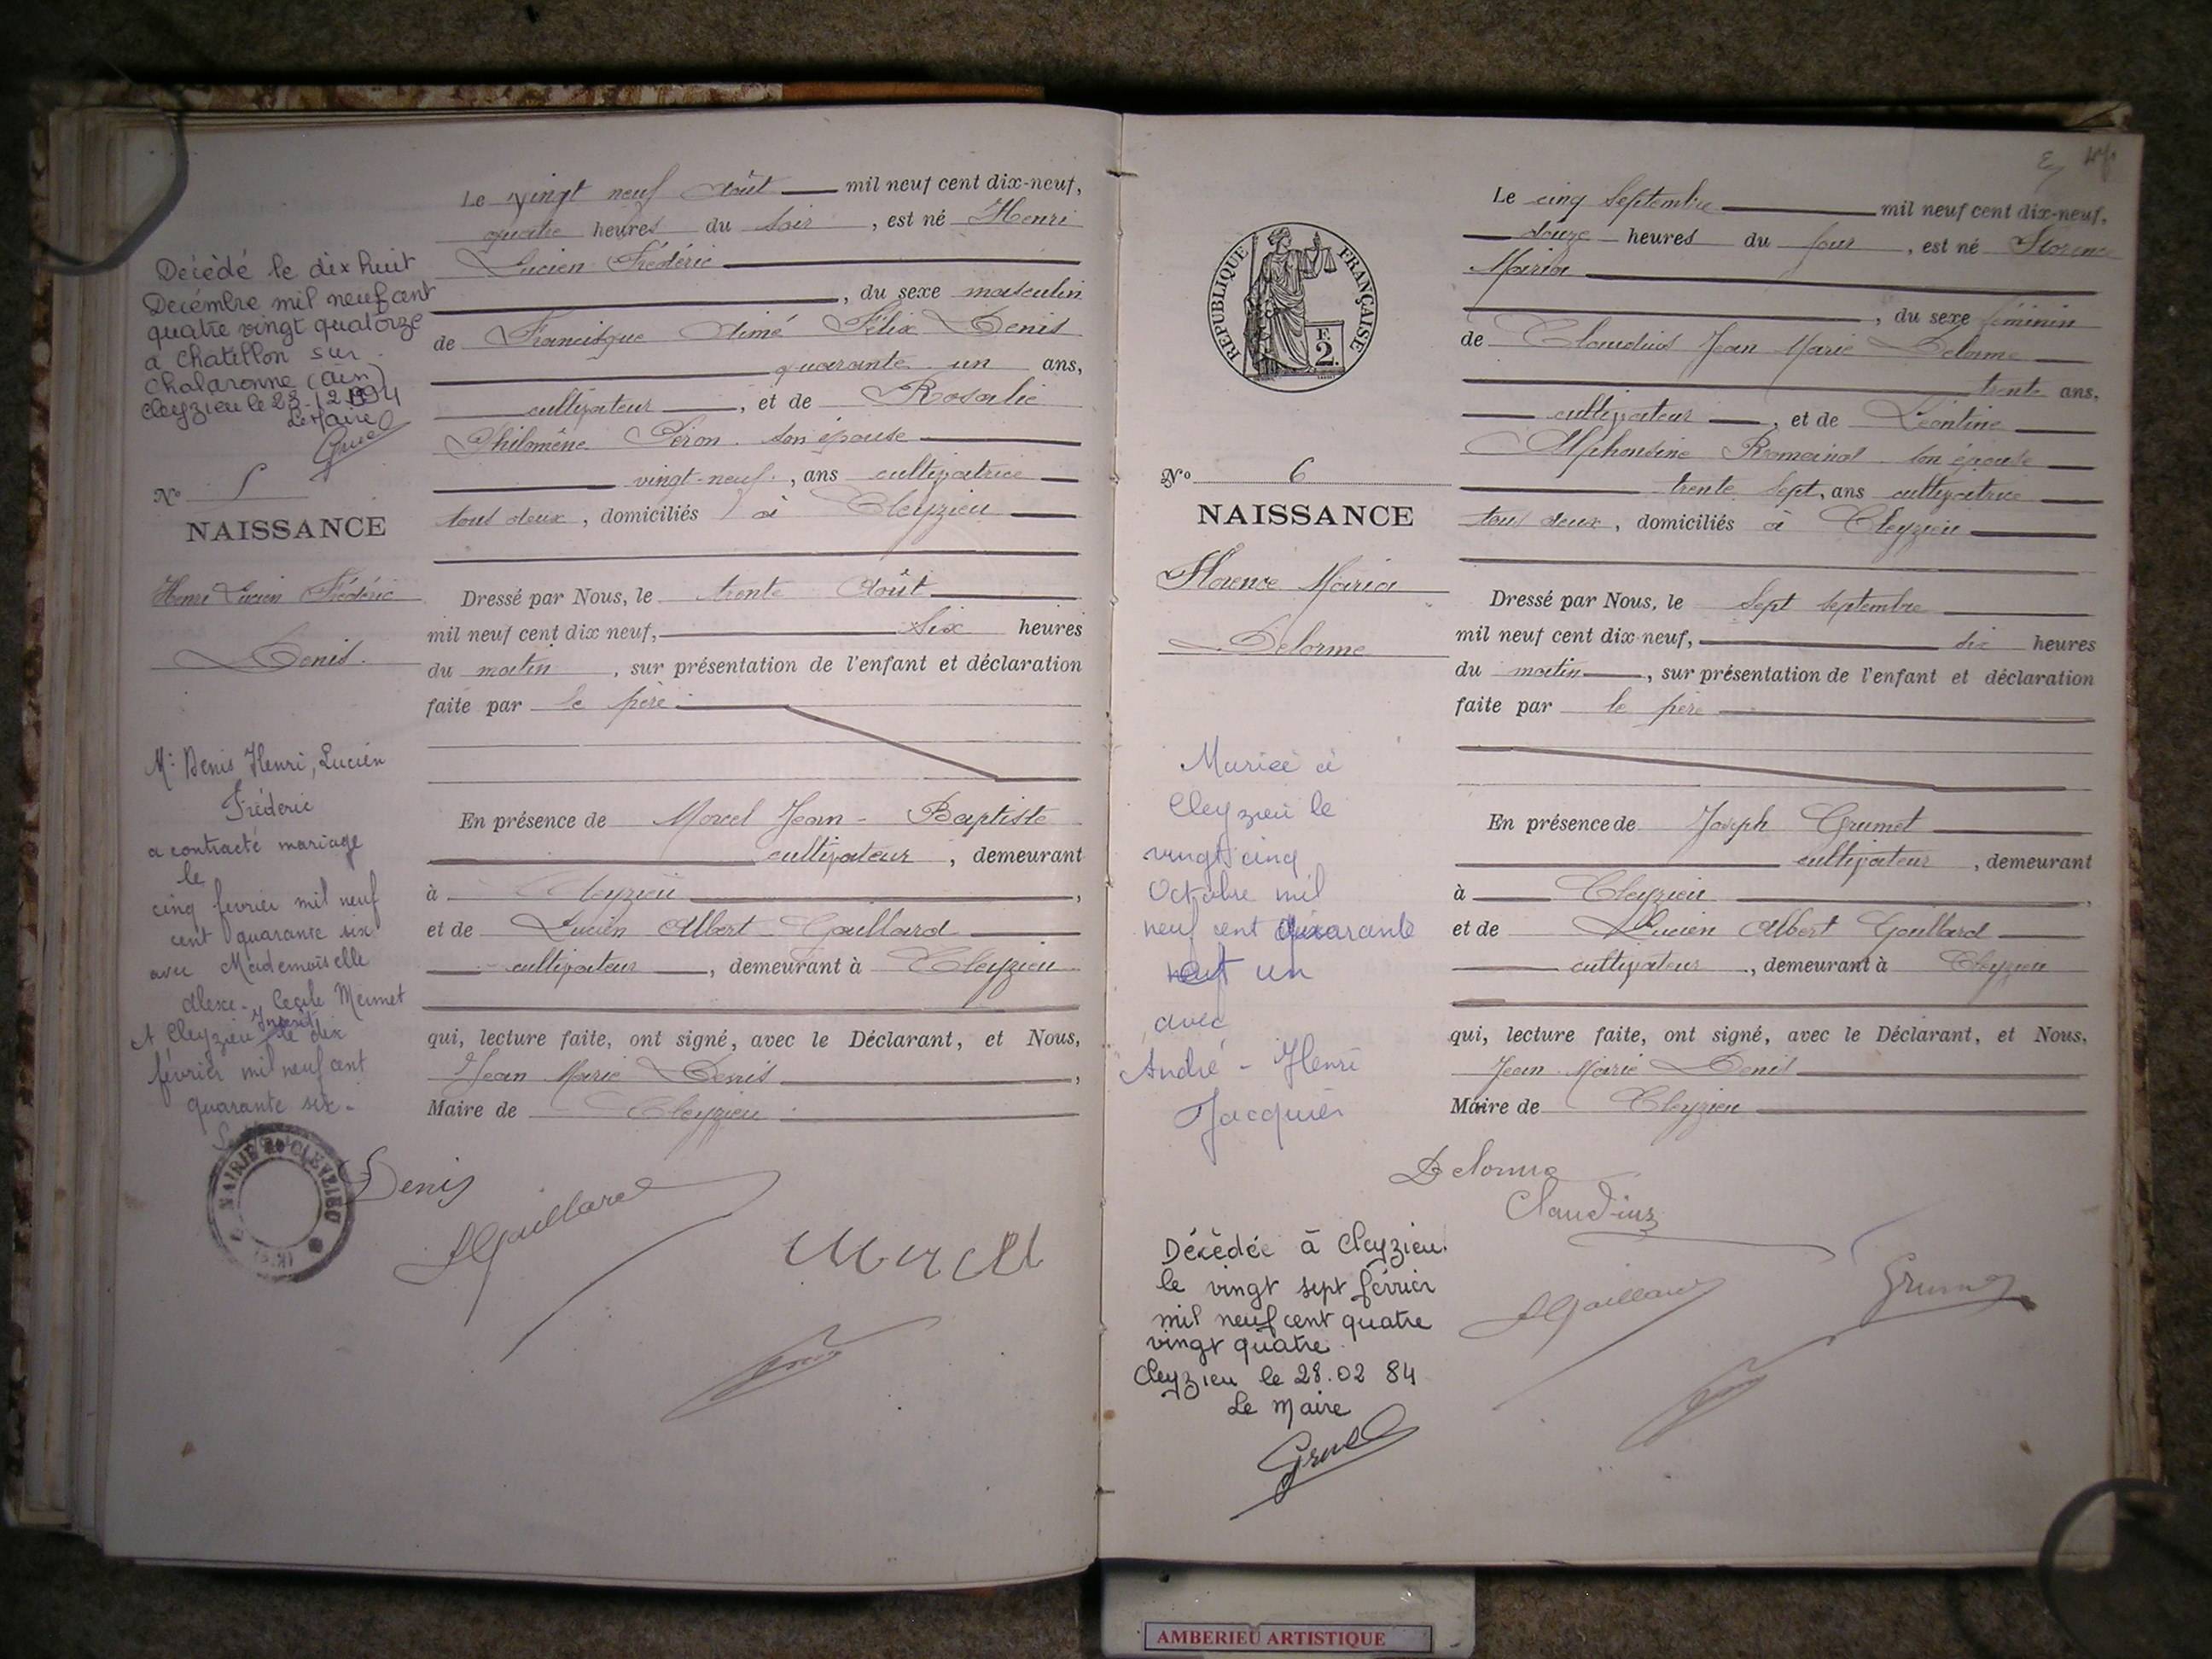 Le vingt neuf Août mil neuf cent dix-neuf,
quatre heures du soir, est né Henri
Lucien Frédéric
, du sexe masculin
de Francisque Aimé Félix Denis
quarante un ans,
cultivateur, et de Rosalie
Philomène Péron son épouse
vingt-neuf, ans cultivatrice
tous deux, domiciliés à Cleyzieu
Dressé par Nous, le trente Août
mil neuf cent dix neuf, six heures
du matin, sur présentation de l'enfant et déclaration
faite par le père
En présence de Marcel Jean-Baptiste
cultivateur, demeurant
à Cleyzieu,
et de Lucien Albert Gaillard
cultivateur, demeurant à Cleyzieu
qui, lecture faite, ont signé, avec le Déclarant, et Nous,
Jean Marie Denis,
Maire de Cleyzieu
Denis
Gaillard
Marcel
Décédé le dix huit
Decémbre mil neuf cent
quatre vingt quatorze
a Chatillon sur
Chalaronne (Ain)
Cleyzieu le 23.12.1994
Le Maire
Nº 5
NAISSANCE
Henri Lucien Frédéric
Denis.
Mr Denis Henri, Lucien
Fréderic
a contracté mariage
le
cinq fevrier mil neuf
cent quarante six
avec Mademoiselle
Cecile Mermet
A Cleyzieu le dix
février mil neuf cent
quarante six.
MAIRIE DE CLEYZIEU
RÉPUBLIQUE FRANÇAISE
F.
2.
Nº 6
NAISSANCE
Florence Maria
Delorme
Mariée à
Cleyzieu le
vingt cinq
Octobre mil
neuf cent quarante
un
avec
André - Henri
Jacquier
Décédée à Cleyzieu
le vingt sept février
mil neuf cent quatre
vingt quatre
Cleyzieu le 28.02 84
Le Maire
Le cinq Septembre mil neuf cent dix-neuf,
douze heures du jour, est né Florence
Maria
, du sexe féminin
de Claudius Jean Marie Delorme
trente ans,
cultivateur, et de Léontine
Alphonsine son épouse
trente sept, ans cultivatrice
tous deux, domiciliés à Cleyzieu
Dressé par Nous, le sept septembre
mil neuf cent dix-neuf, dix heures
du matin, sur présentation de l'enfant et déclaration
faite par le père
En présence de Joseph Grumet
cultivateur, demeurant
à Cleyzieu,
et de Lucien Albert Gaillard
cultivateur, demeurant à Cleyzieu
qui, lecture faite, ont signé, avec le Déclarant, et Nous,
Jean Marie Denis
Maire de Cleyzieu
Delorme
Claudius
Gaillard
Grumet
AMBERIEU ARTISTIQUE